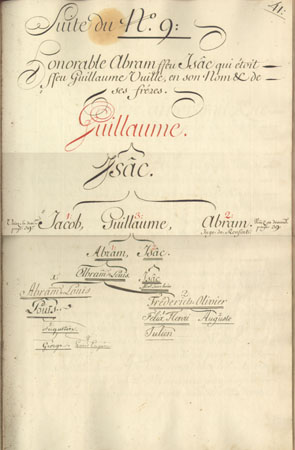 41.
Suite du N.º 9:
Honorable Abram ffeu Isâc qui étoit
ffeu Guillaume Vuille, en son Nom & de
ses frères.
Guillaume.
Isâc.
Jacob, Guillaume, Abram.
Abram, Isâc.
Abram-Louis Isâc
Abram-Louis Frédérich-Olivier
Louis Félix Henri Auguste
Augustin Julien
George